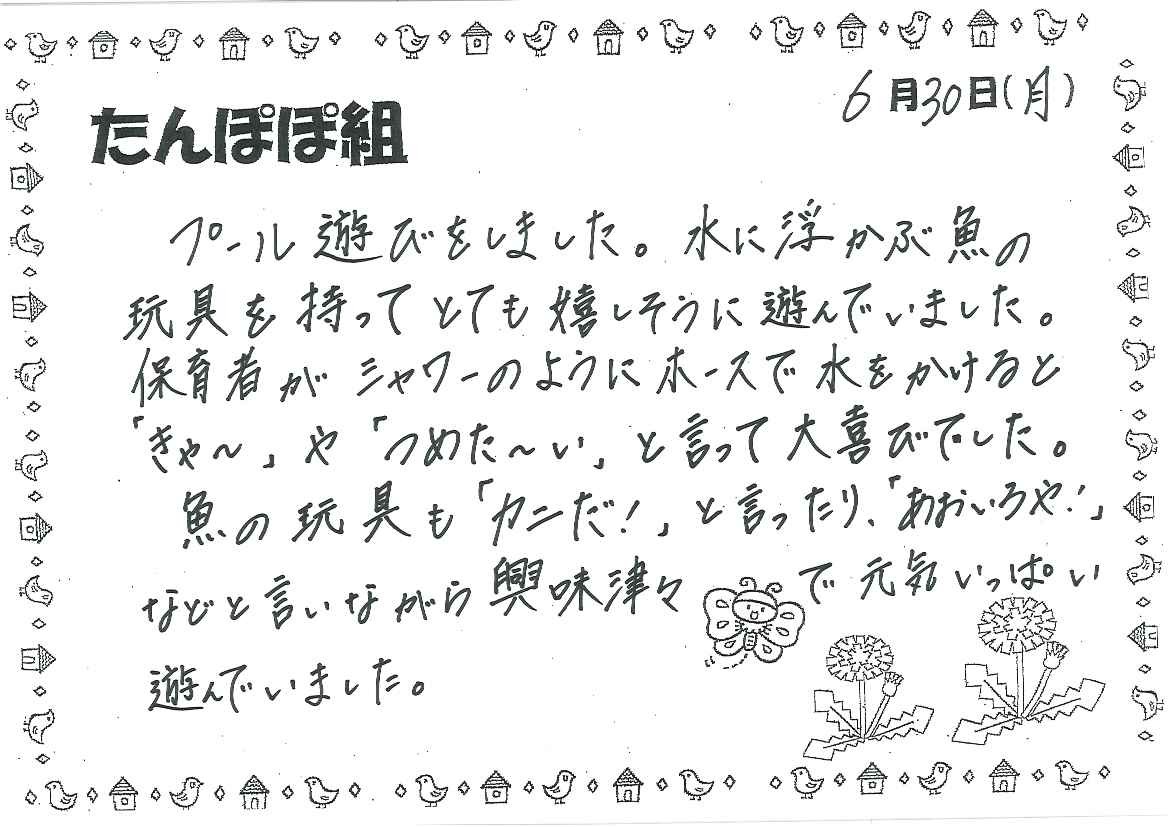 6月30日(月)
たんぽぽ組
プール遊びをしました。水に浮かぶ魚の
玩具を持ってとても嬉しそうに遊んでいました。
保育者がシャワーのようにホースで水をかけると
「きゃ〜」や「つめた〜い」と言って大喜びでした。
魚の玩具も「カニだ!」と言ったり、「あおいろや!」
などと言いながら興味津々で元気いっぱい
遊んでいました。